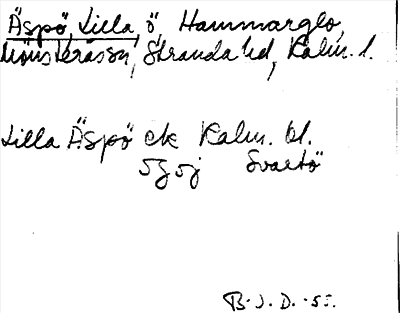 Äspö, Lilla, ö, Hammarglo,
Mönsterås sn, Stranda hd, Kalm. l.
Lilla Äspö ek Kalm. bl.
5g5j Svartö
B. J. D. -55.